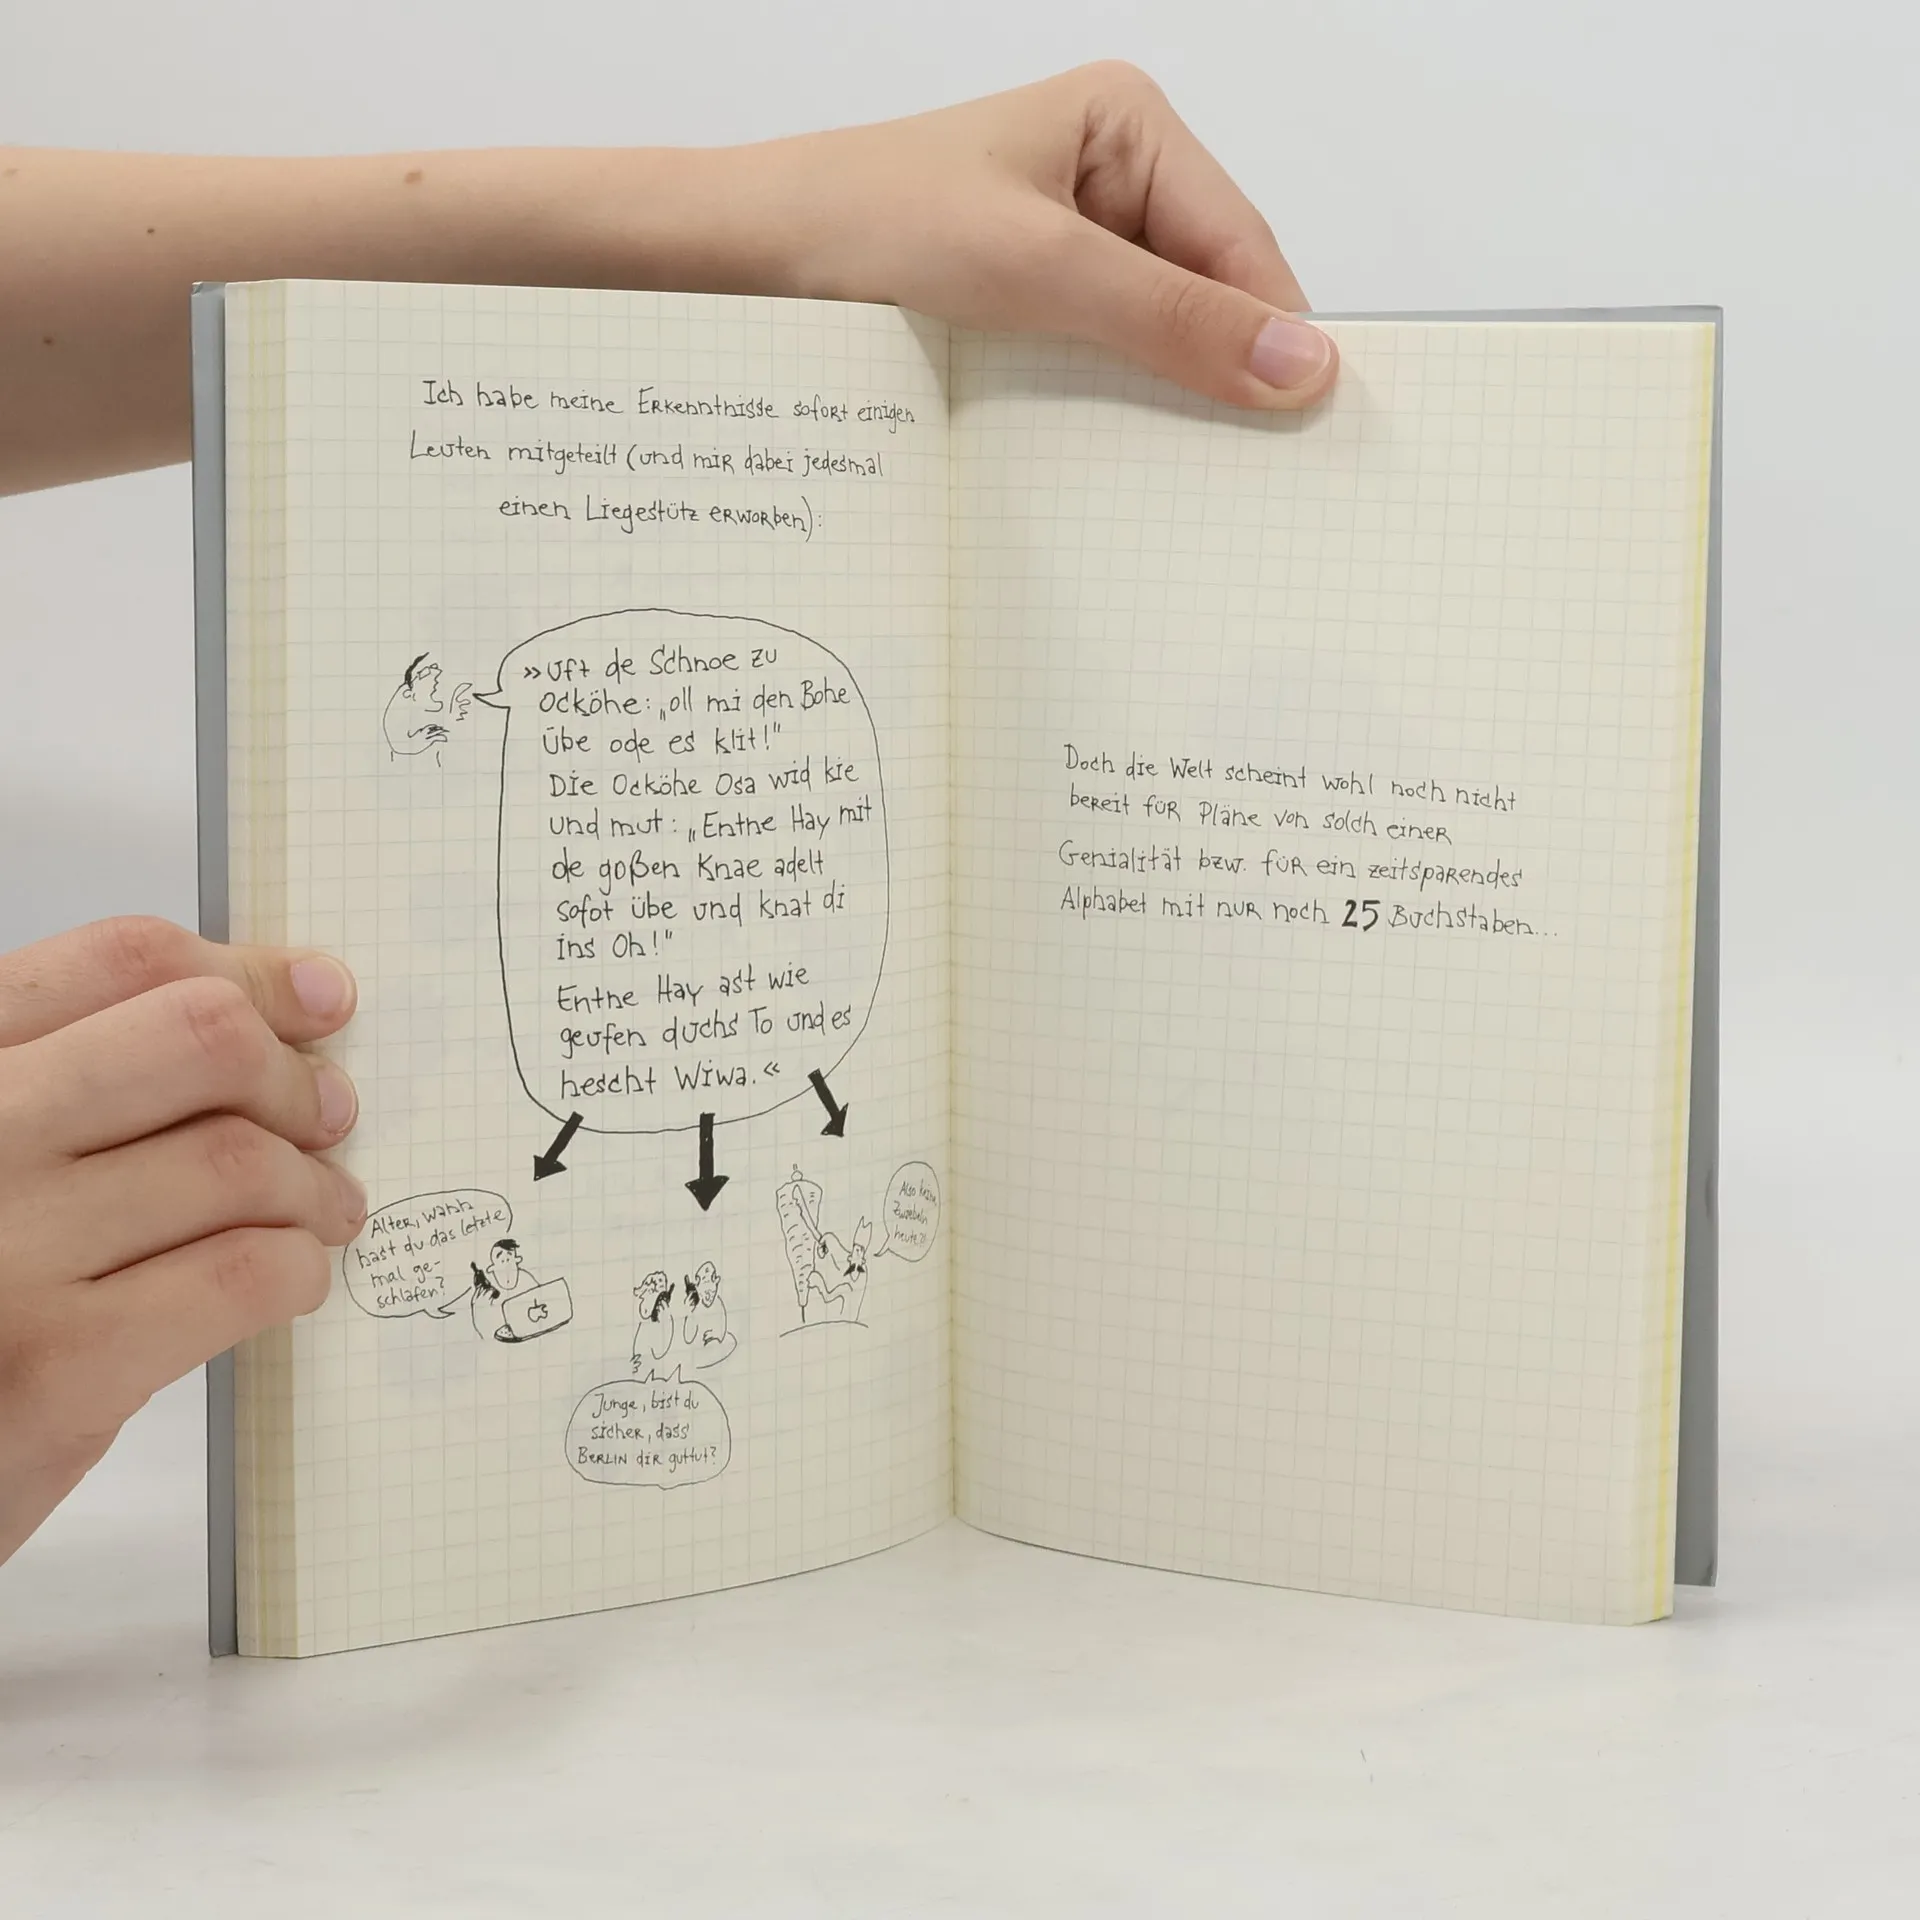 Ich habe meine Erkenntnisse sofort einigen
Leuten mitgeteilt (und mir dabei jedesmal
einen Liegestütz erworben):
»Uft de Schnoe zu
Ocköhe: „oll mi den Bohe
übe ode es klit!"
Die Ocköhe Osa wid kie
und mut: „Entne Hay mit
de goßen Knae adelt
sofot übe und knat di
ins Oh!"
Entne Hay ast wie
geufen duchs To und es
hescht Wiwa.«
Alter, wann
hast du das letzte
mal ge-
schlafen?
Junge, bist du
sicher, dass
Berlin dir guttut?
Also keine
Zwiebeln
heute?!
Doch die Welt scheint wohl noch nicht
bereit für Pläne von solch einer
Genialität bzw. für ein zeitsparendes
Alphabet mit nur noch 25 Buchstaben...